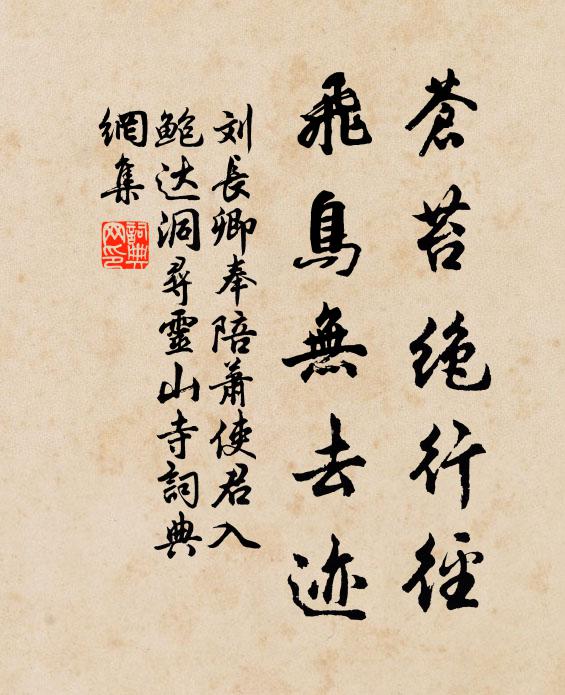 蒼苔絶行徑
飛鳥無去迹
刘長卿奉陪蕭使君入
鲍达洞尋靈山寺詞典
網集
詞典
网印